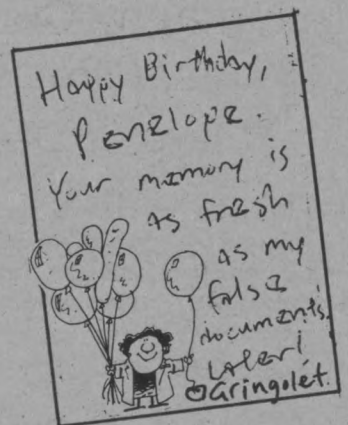 Happy Birthday,
Penelope.
Your memory is
as fresh
as my
false
documents.
Gringolét.